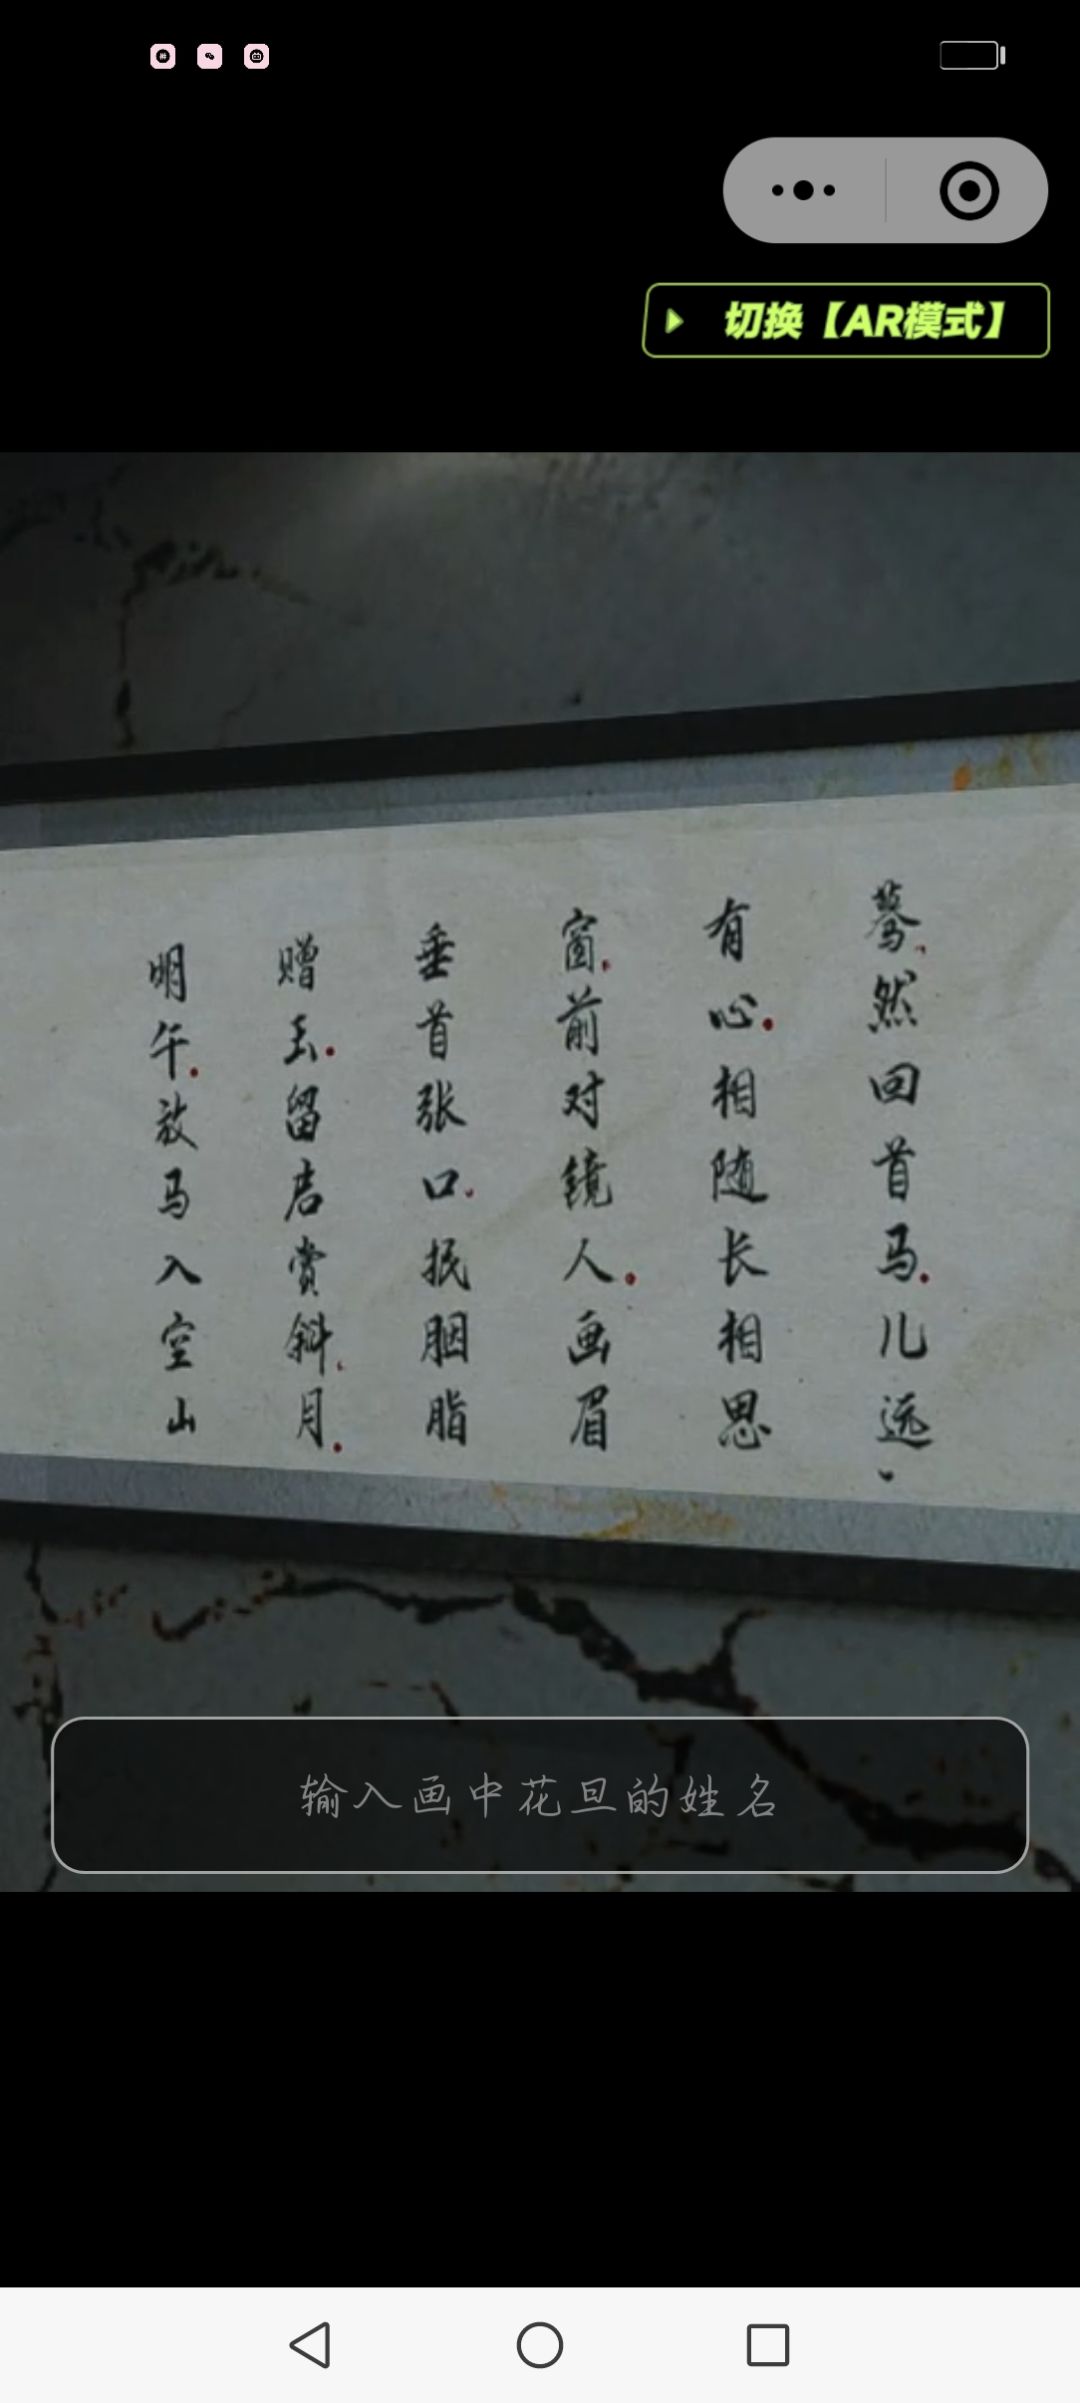 切换【AR模式】
蓦然回首马儿远
有心相随长相思
窗前对镜人画眉
垂首张口抿胭脂
赠玉留店赏斜月
明午放马入空山
输入画中花旦的姓名